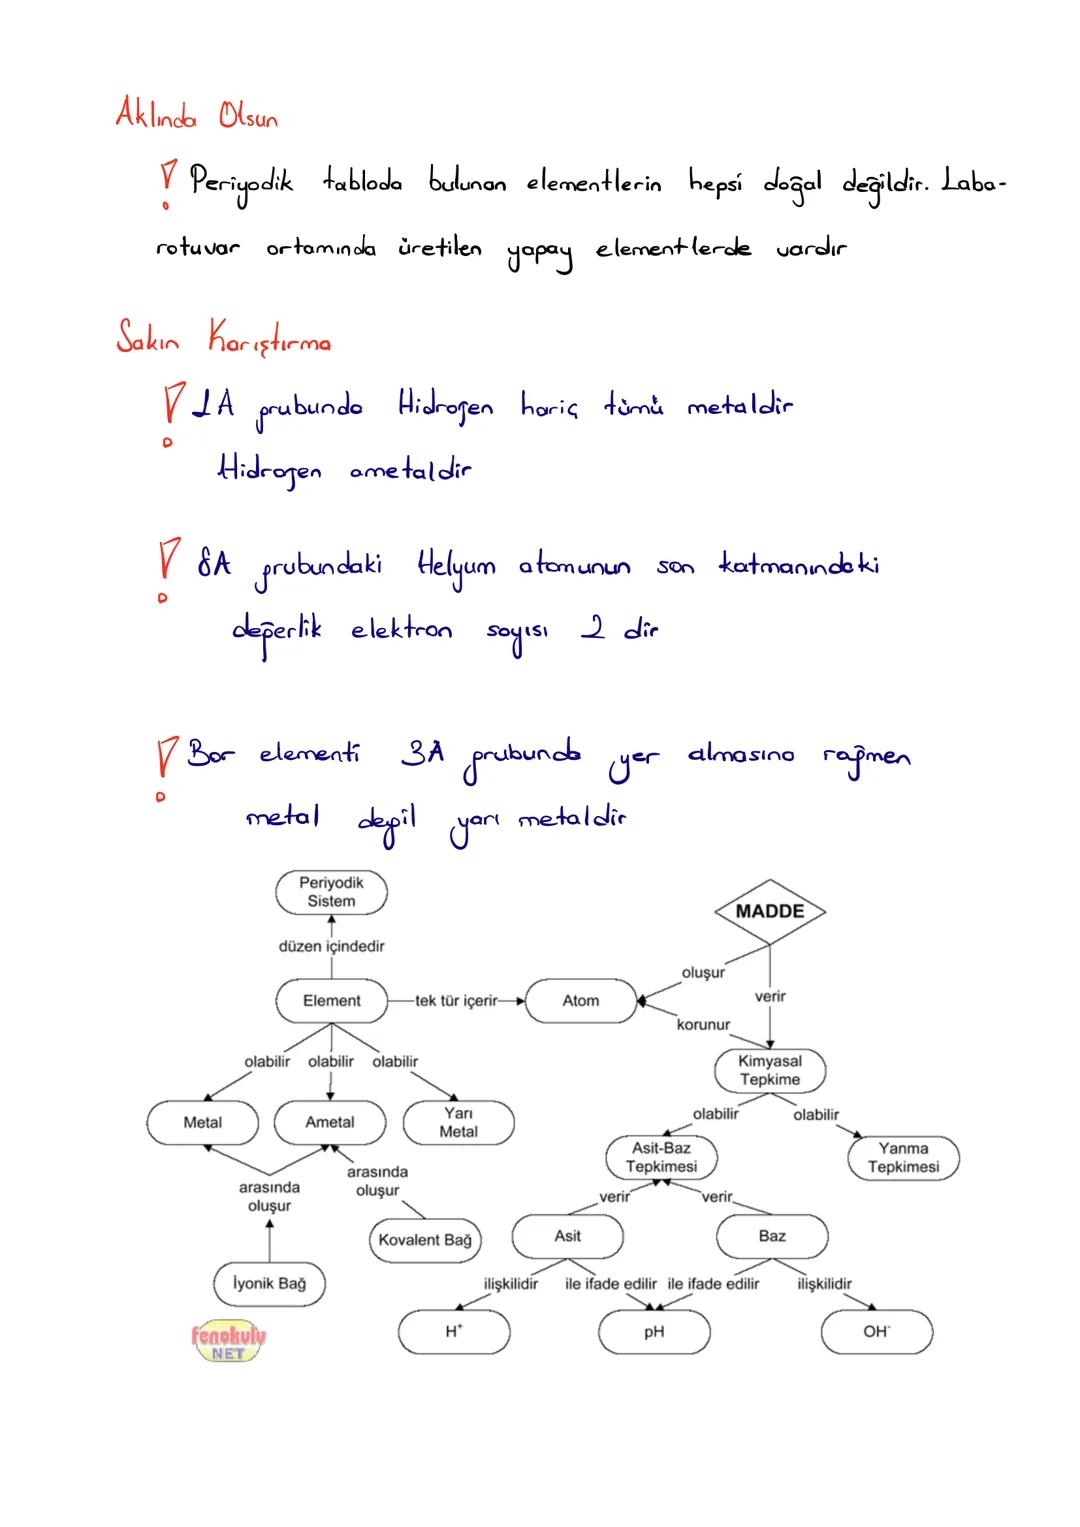 Aklında Olsun
Periyodik tabloda bulunan elementlerin hepsi doğal değildir. Laba-
rotuvar ortamında üretilen yapay elementlerde vardır
Sakın Karıştırma
1A grubunda Hidrojen hariç tümü metaldir
Hidrojen ametaldir
8A grubundaki Helyum atomunun son katmanındaki
değerlik elektron sayısı 2 dir
Bor elementi 3A grubunda yer almasına rağmen
metal değil yarı metaldir
Periyodik
Sistem
MADDE
düzen içindedir
oluşur
verir
Element
tek tür içerir
Atom
korunur
olabilir olabilir olabilir
Kimyasal
Tepkime
olabilir olabilir
Metal
Ametal
Yarı
Metal
Asit-Baz
Tepkimesi
Yanma
Tepkimesi
arasında
oluşur
arasında
oluşur
verir verir
Kovalent Bağ
Asit
Baz
İyonik Bağ
ilişkilidir ile ifade edilir ile ifade edilir ilişkilidir
H⁺
pH
OH⁻
fenokulu
NET